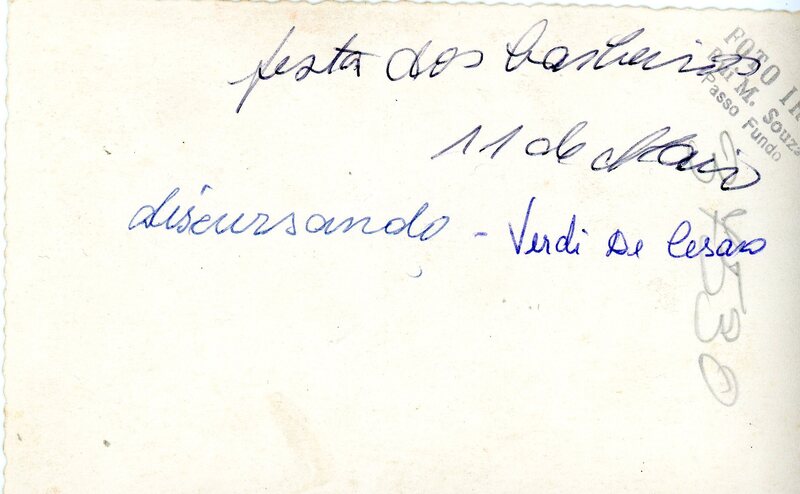 festa dos barbeiros
11 de Maio
discursando - Verdi De Cesaro
FOTO IR
M. Souza
Passo Fundo